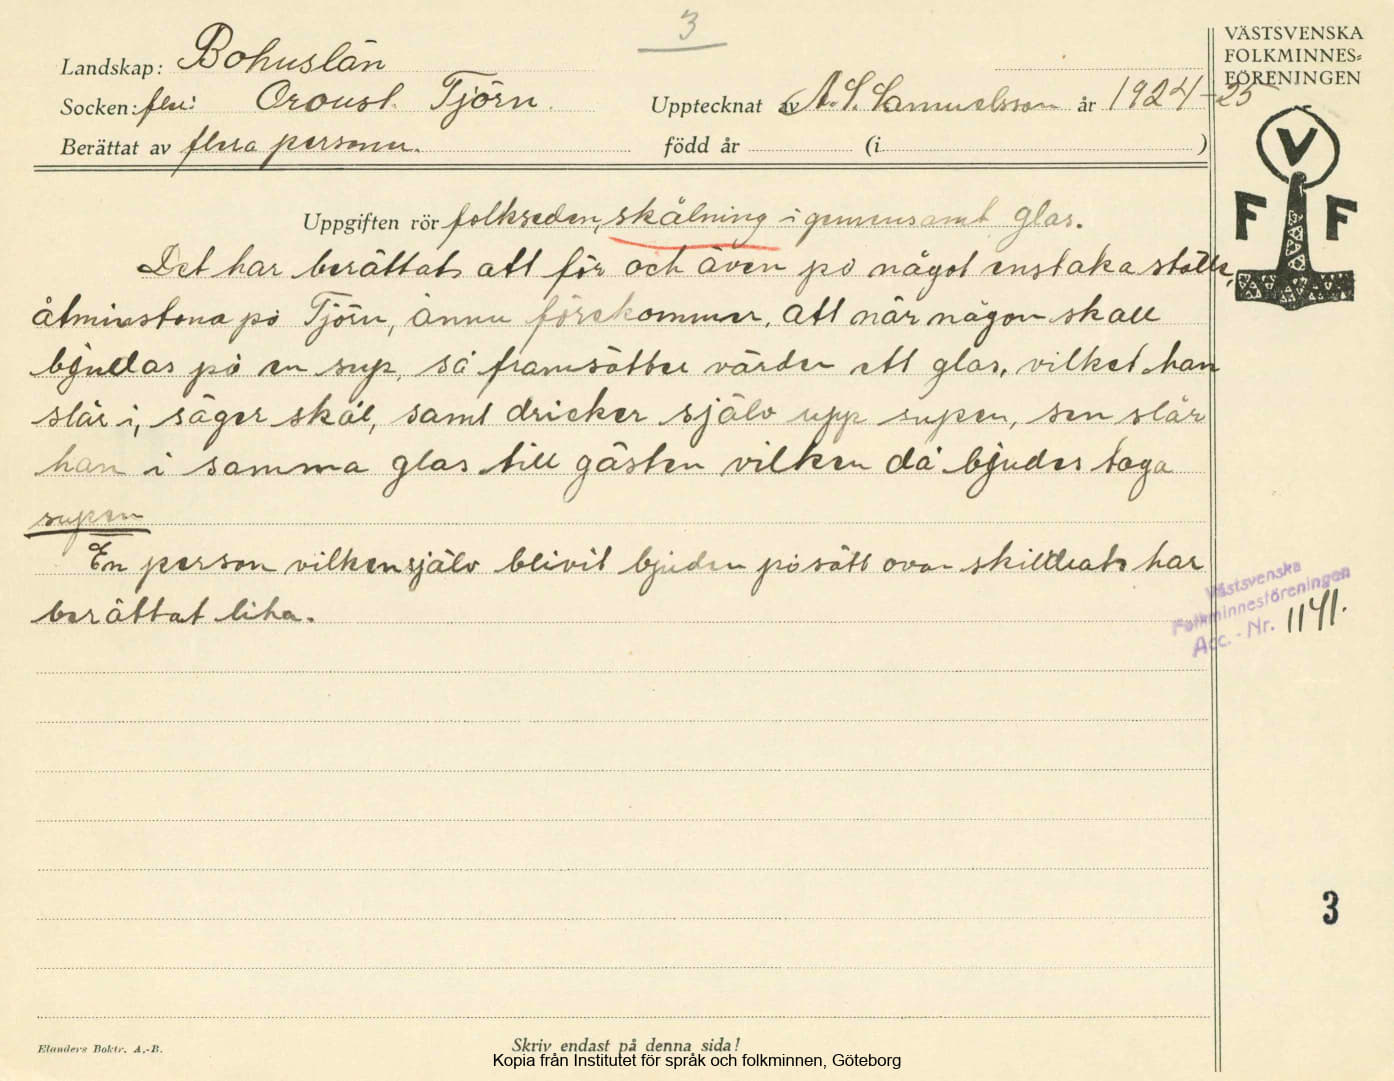 3
VÄSTSVENSKA
FOLKMINNES=
FÖRENINGEN
Landskap: Bohuslän
Socken: fler: Oroust. Tjörn.
Upptecknat av A. S. Samuelsson år 1924-25
Berättat av flera personer.
född år (i )
V
F F
Uppgiften rör folkseden, skålning i gemensamt glas.
Det har berättats att för och även på något enstaka ställe,
åtminstone på Tjörn, ännu förekommer, att när någon skall
bjudas på en sup, så framsätter värden ett glas, vilket han
slår i, säger skål, samt dricker själv upp supen, sen slår
han i samma glas till gästen vilken då bjudes taga
supen
En person vilken själv blivit bjuden på sätt ovan skildrats har
berättat lika.
Västsvenska
Folkminnesföreningen
Acc. - Nr. 1141.
3
Elanders Boktr. A.-B.
Skriv endast på denna sida!
Kopia från Institutet för språk och folkminnen, Göteborg